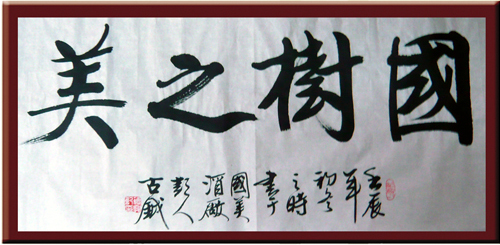 國樹之美
壬辰
年
初冬
之時
書于
國美
彭人
古